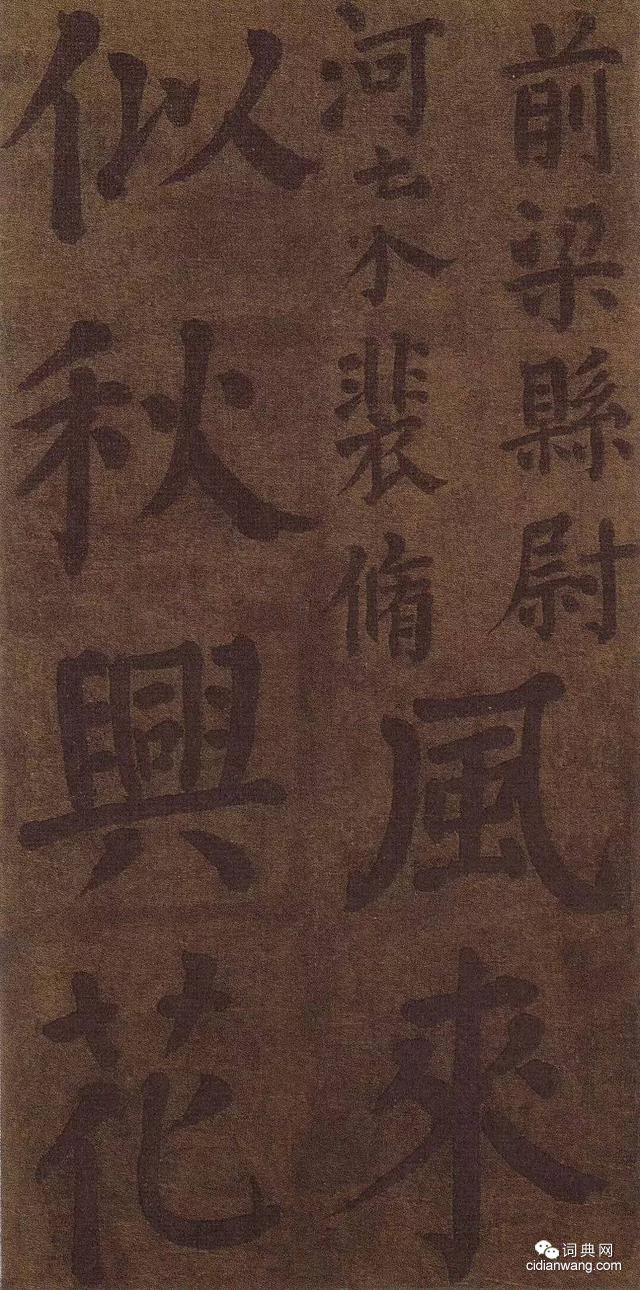 前梁縣尉
河东裴脩
風來
似秋興花
词典网
cidianwang.com